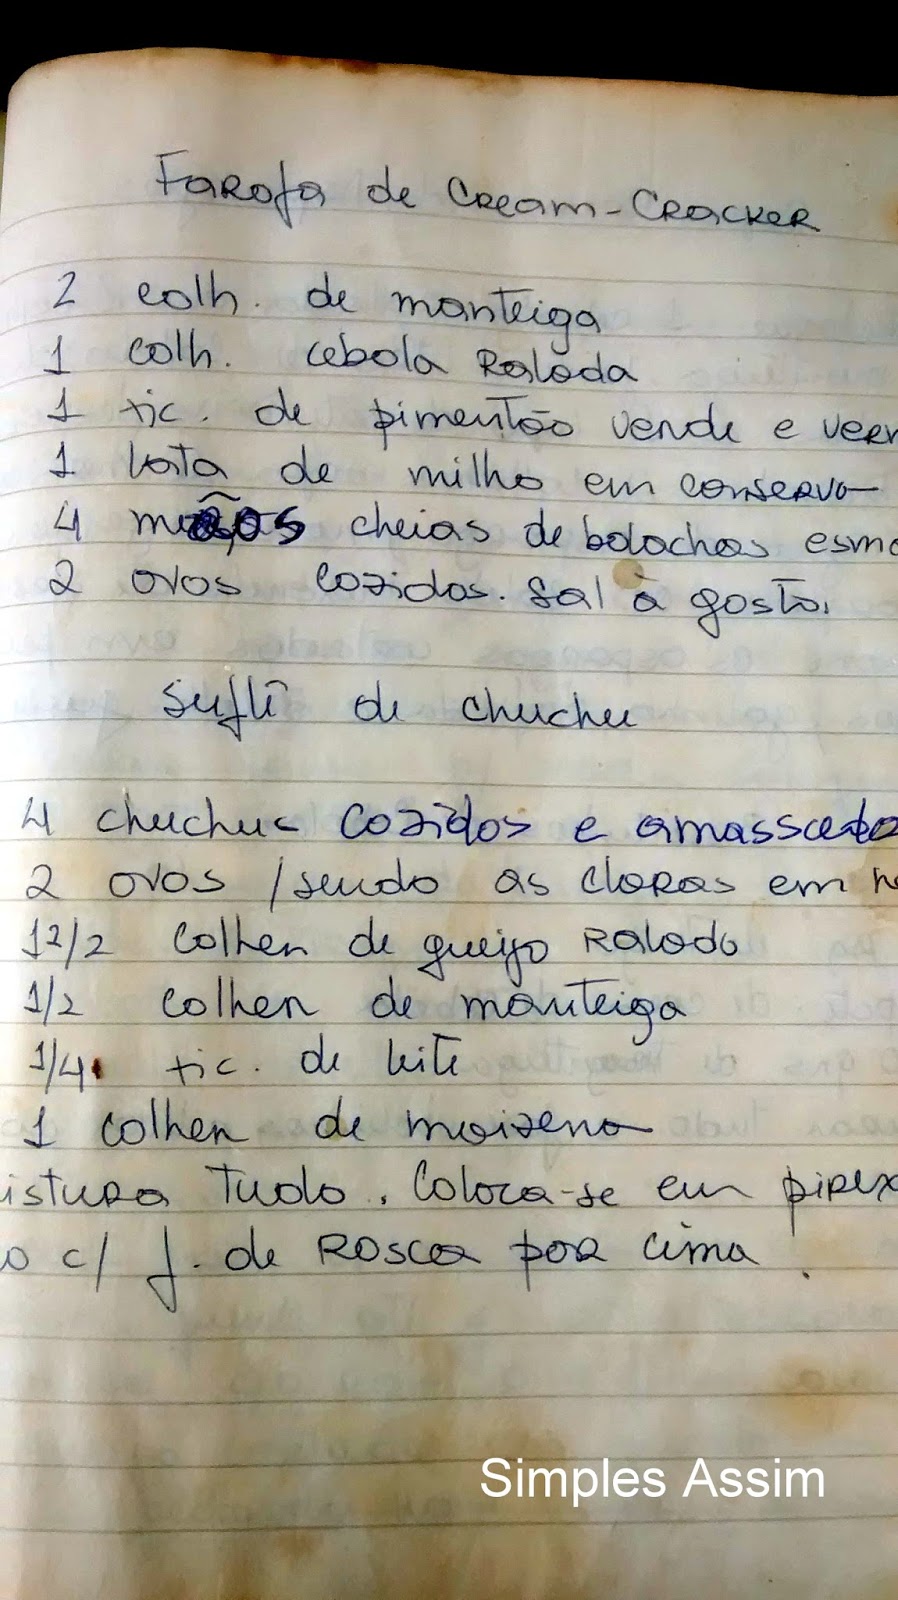 Farofa de Cream-Cracker
2 colh. de manteiga
1 colh. cebola Ralada
1 xic. de pimentão verde e verm
1 lata de milho em conserva
4 mãos cheias de bolachas esma
2 ovos cozidos. Sal à gosto.
Suflê de chuchu
4 chuchus cozidos e amassado
2 ovos /sendo as claras em ne
1 2/2 colher de queijo Ralado
1/2 colher de manteiga
1/4 xic. de leite
1 colher de maizena
istura Tudo. Coloca-se em pirex
o c/ f. de Rosca por cima.
Simples Assim